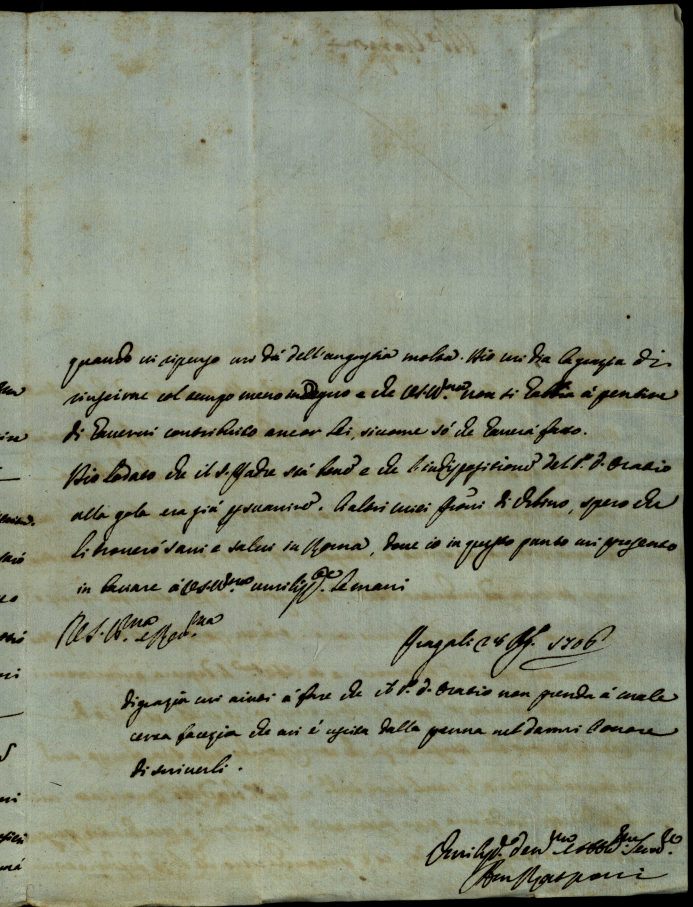 quando vi ripenso mi dà dell'angustia molta. Dio mi dia la grazia di
riuscirne col tempo meno indegno e che VS.Ill.ma non si habbia à pentire
di havervi contribuito ancor lei, sicome sò che haverà fatto.
Dio lodato che il S. Padre stà bene e che l'indisposizione del P. d. Oratio
alla gola era già svanita. Gl'altri miei di Urbino, spero che
li troverò sani e salvi in Roma, dove io in questo punto mi presento
in baciare à VS.Ill.ma umiliss.te le mani
VS. Ill.ma e Rev.ma
Fragali 28 1706
di grazia mi aiuti à fare che il P. d. Oratio non prenda à male
certa facezia che mi è uscita dalla penna nel darmi l'onore
di scriverli.
Umiliss. dev.mo obblig.mo Serv.re